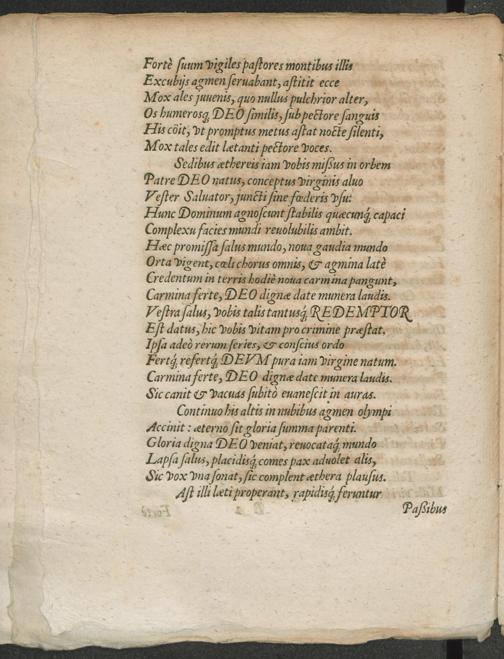 Fortè suum vigiles pastores montibus illis
Excubijs agmen seruabant, astitit ecce
Mox ales juuenis, quo nullus pulchrior alter,
Os humerosq́, DEO similis, sub pectore sanguis
His còit, vt promptus metus astat nocte silenti,
Mox tales edit lætanti pectore voces.
Sedibus æthereis iam vobis missus in orbem
Patre DEO natus, conceptus virginis aluo
Vester Saluator, juncti sine fœderis vsu:
Hunc Dominum agnoscunt stabilis quæcunq́, capaci
Complexu facies mundi reuolubilis ambit.
Hæc promissa salus mundo, noua gaudia mundo
Orta vigent, cœli chorus omnis, & agmina latè
Credentum in terris hodiè noua carmina pangunt,
Carmina ferte, DEO dignæ date munera laudis.
Vestra salus, vobis talis tantusq́, REDEMPTOR
Est datus, hic vobis vitam pro crimine præstat.
Ipsa adeò rerum series, & conscius ordo
Fertq́, refertq́, DEVM pura iam virgine natum.
Carmina ferte, DEO dignæ date munera laudis.
Sic canit & vacuas subitò euanescit in auras.
Continuo his altis in nubibus agmen olympi
Accinit: æternò sit gloria summa parenti.
Gloria digna DEO veniat, reuocataq́, mundo
Lapsa salus, placidisq́, comes pax aduolet alis,
Sic vox vna sonat, sic complent æthera plausus.
Ast illi læti properant, rapidisq́, feruntur
Passibus